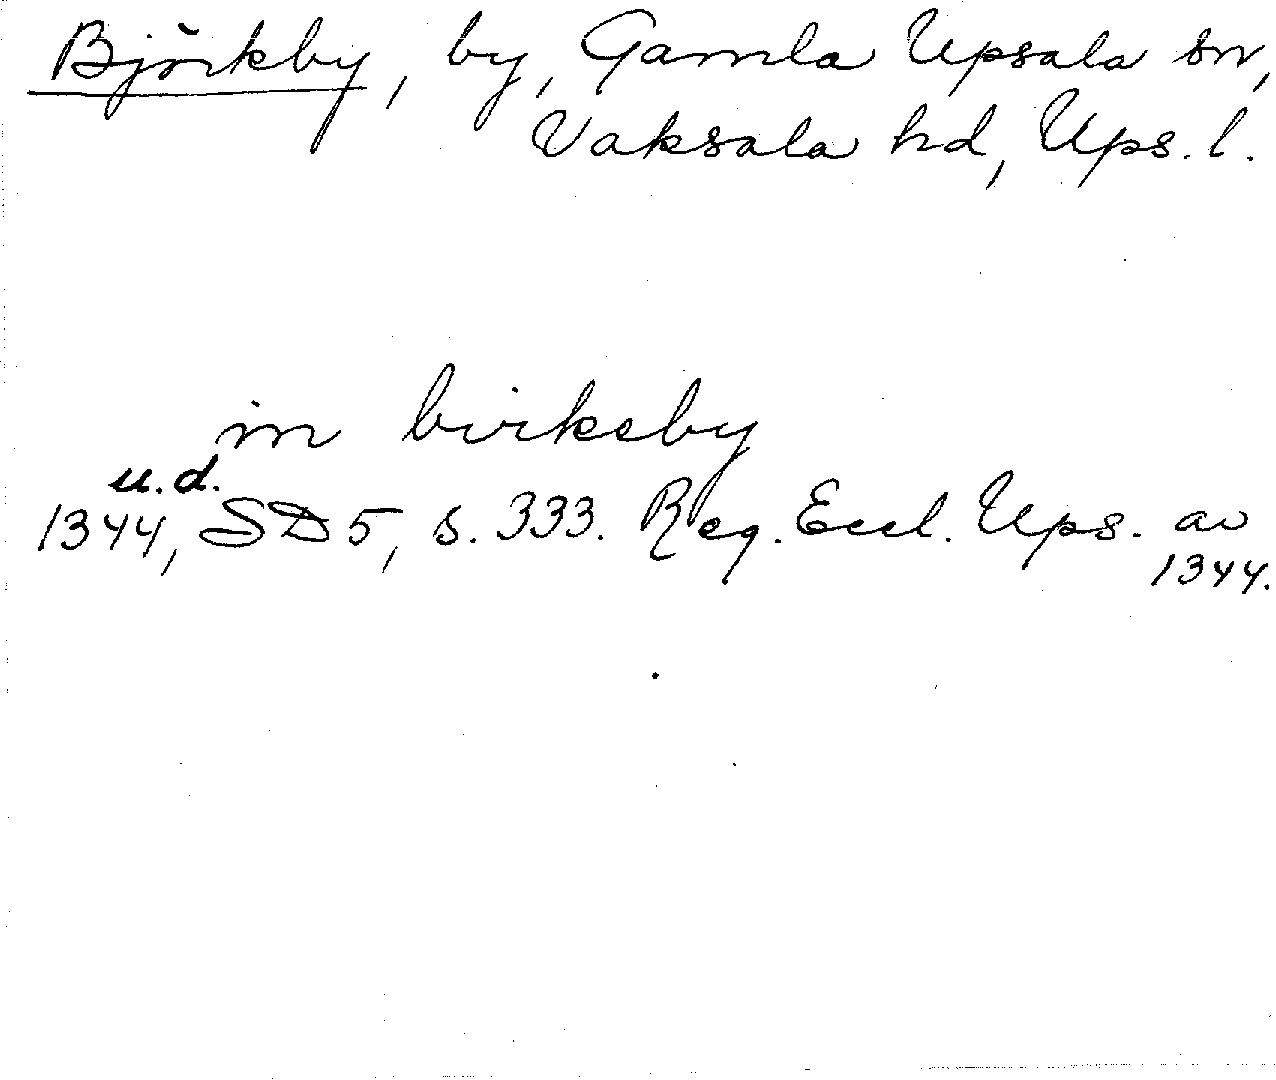 Björkby, by, Gamla Upsala sn,
Vaksala hd, Ups. l.
in birkeby
u.d.
1344, SD 5, s. 333. Reg. Eccl. Ups. av
1344.